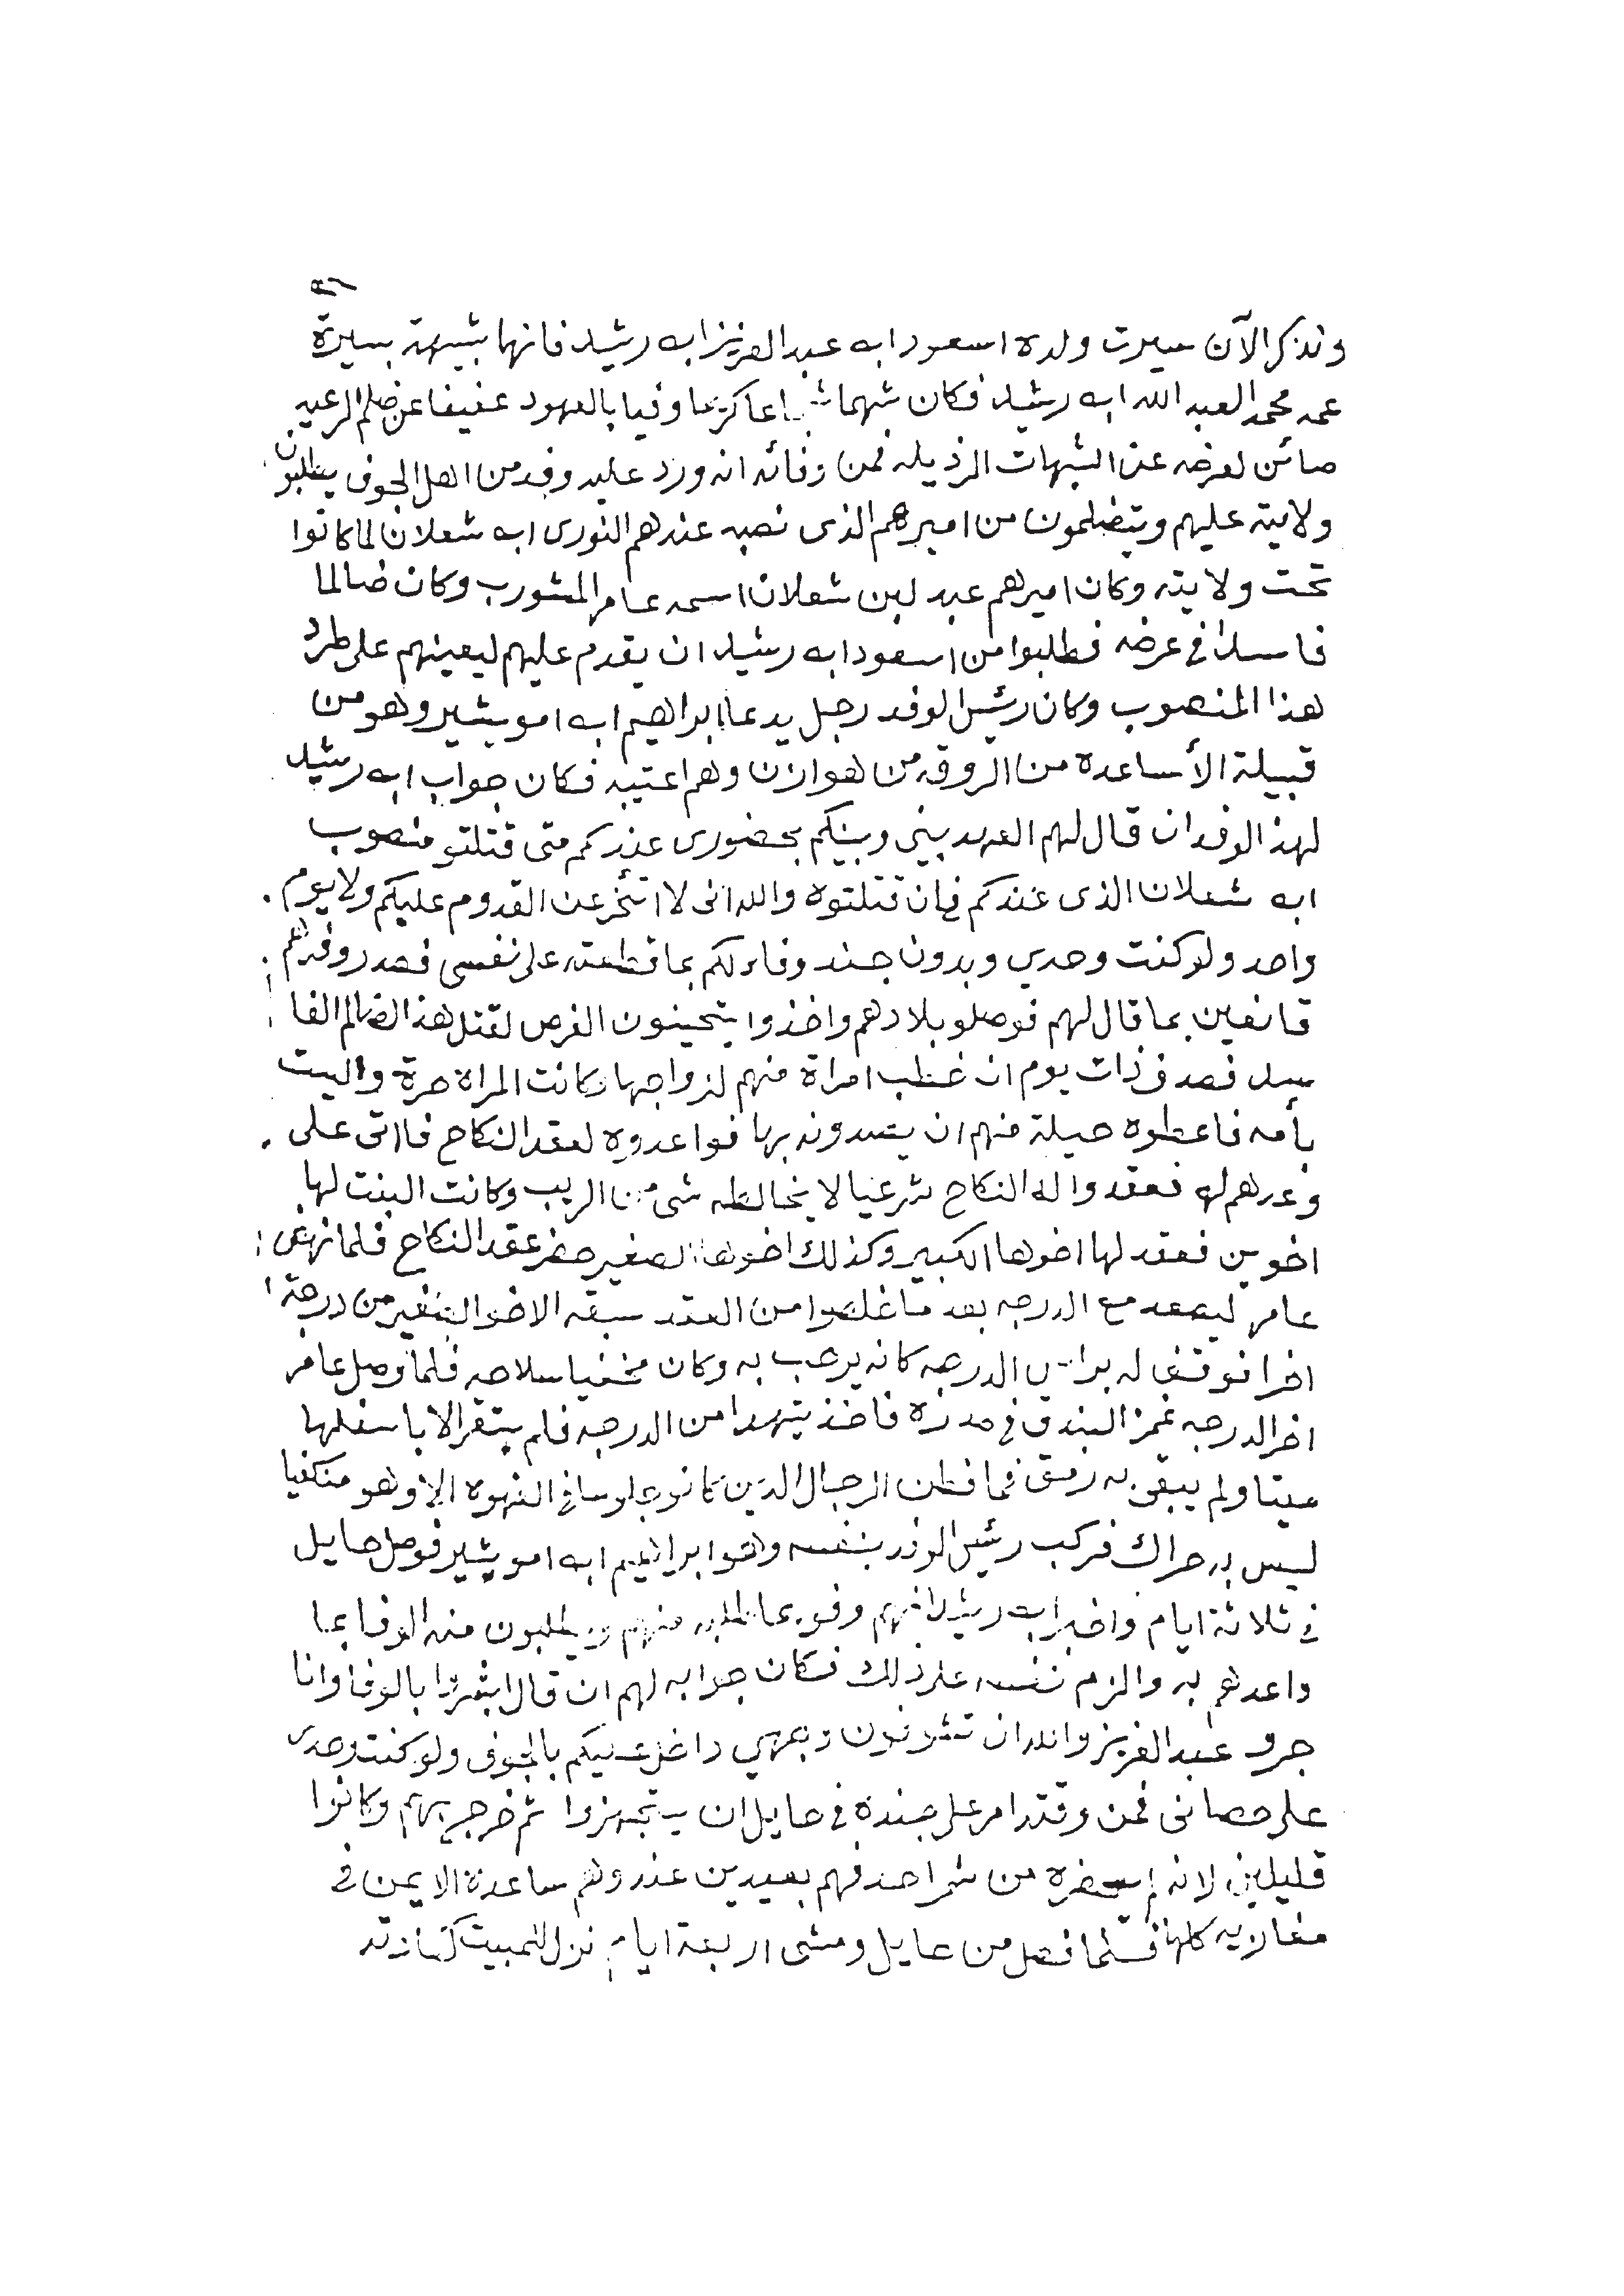 ونذكر الآن سيرت ولده اسعود ابه عبد العزيز ابه رشيد فانها شبيهة بسيرة
عمه محمد العبد الله ابه رشيد فكان شهما شجاعا كريما وفيا بالعهود عفيفا عن ضلم الرعيه
صائن لعرضه عن الشبهات الرذيله فمن وفائه انه ورد عليه وفد من اهل الجوف يطلبون
ولايته عليهم ويتضلمون من اميرهم الذى نصبه عندهم النورى ابه شعلان لما كانوا
تحت ولايته وكان اميرهم عبد لبن شعلان اسمه عامر المشورب وكان ضالما
فاسدا في عرضه فطلبوا من اسعود ابه رشيد ان يقدم عليهم ليعينهم على طرد
هذا المنصوب وكان رئيس الوفد رجل يدعا ابراهيم ابه امويشير وهو من
قبيلة الأساعده من الروقه من هوازن وهم اعتيبه فكان جواب ابه رشيد
لهذ الوفد ان قال لهم العهد بيني وبينكم بحضورى عندكم متى قتلتو منصوب
ابه شعلان الذى عندكم فان قتلتوه والله انى لا اتئخر عن القدوم عليكم ولا يوم
واحد ولو كنت وحدي وبدون جند وفاء لكم بما قطعته على نفسى فصدر وفدهم
قانعين بما قال لهم فوصلو بلادهم واخذوا يتحينون الفرص لقتل هذ الضالم الفا
سد فصدف ذات يوم ان غظب امراة منهم لزواجها وكانت المراة حرة واليست
بأمه فاعطوه حيلة منهم ان يسدونه بها فواعدوه لعقد النكاح فااتى على
وعدهم له فعقدوا له النكاح شرعيا لا يخالطه شى من الريب وكانت البنت لها
اخوين فعقد لها اخوها الكبير وكذلك اخوها الصغير حضر عقد النكاح فلما نهض
عامر ليصعد مع الدرجه بعد ما خلصوا من العقد سبقه الاخو الصغير من درجة
اخرا فوقف له براس الدرجه كانه يرحب به وكان مخفيا سلاحه فلما وصل عامر
اخر الدرجه غمز البندق في صدره فاخذ يتهدا من الدرجه فلم يستقر الا باسفلها
ميتا ولم يبقى به رمق فما فطن الرجال الذين كانو جلوسا في القهوه الا وهو منكفيا
ليس به حراك فركب رئيس الوفد بنفسه وهو ابراهيم ابه امويشير فوصل حايل
في ثلاثة ايام واخبر ابه رشيد انهم وفو بما طلبه منهم ويطلبون منه الوفا بما
واعدهم به والزم نفسه على ذلك فكان جوابه لهم ان قال ابشروا بالوفا وانا
جرو عبد العزيز والله ان تشوفون وجهي داخل عليكم بالجوف ولو كنت وحدى
على حصانى فمن وقته امر على جنده في حايل ان يتجهزوا ثم خرج بهم وكانوا
قليلين لانه لم يحضره من شمر احد فهم بعيدين عنه وهم ساعده الايمن في
مغازيه كلها فلما فصل من حايل ومشى اربعة ايام نزل للمبيت كعادته